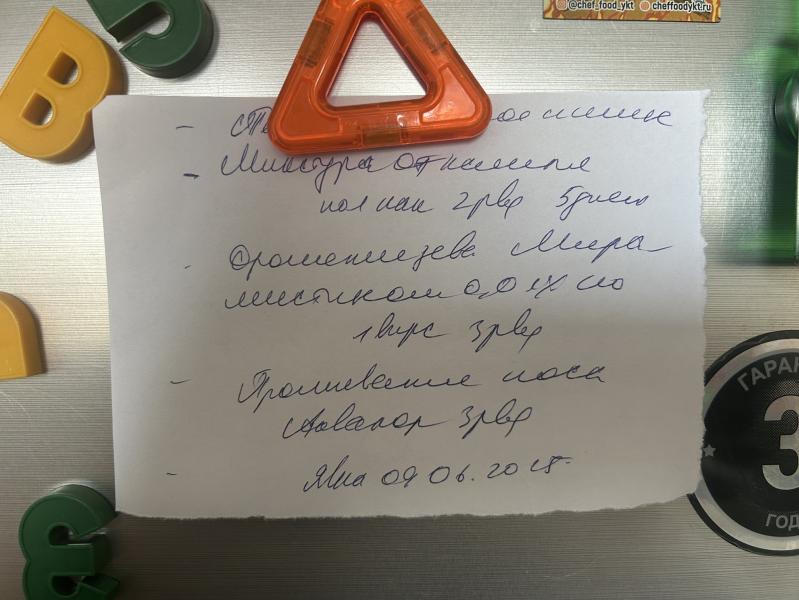 @chef_food_ykt cheffoodykt.ru
- ое питье
- Микстура от кашля
пол пак 2рвд 5дней
- Орошение зева Мира
мистином 0,01% по
1 впрс 3рвд
- Промывание носа
Аквалор 3рвд
- Явка 09.06.2025.
ГАРАН
3
ГОД